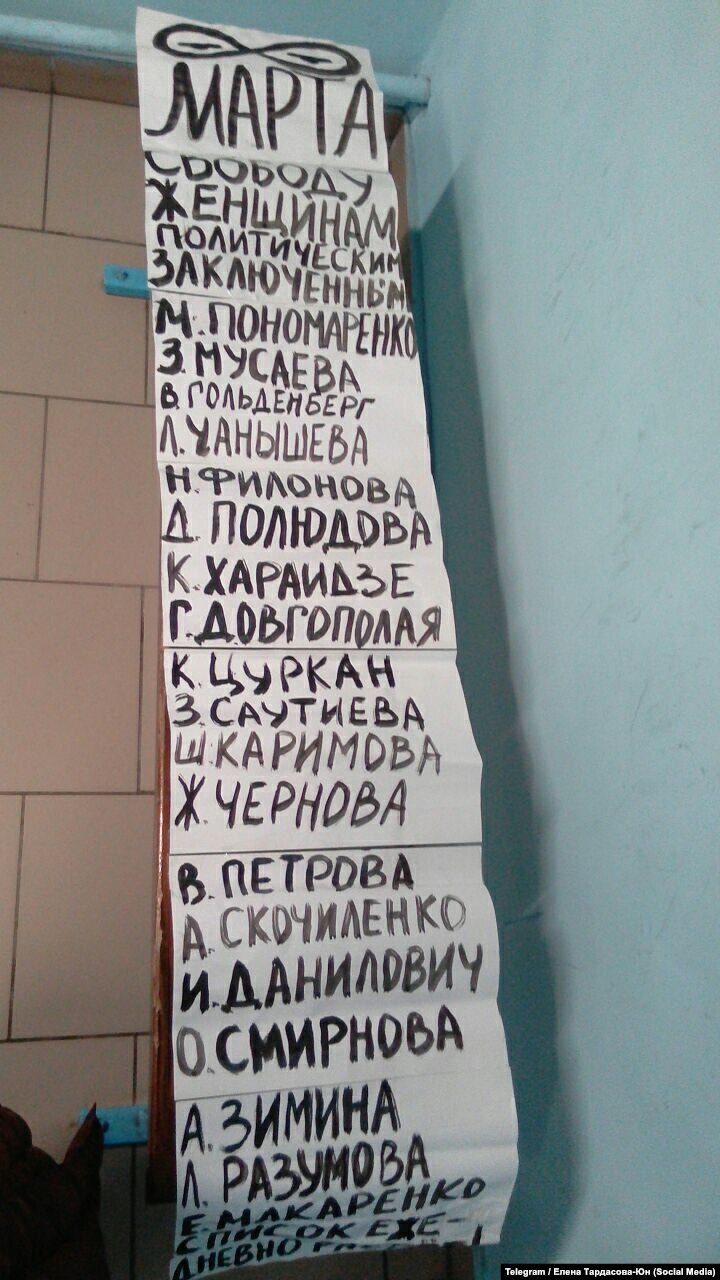 ∞
МАРТА
СВОБОДУ
ЖЕНЩИНАМ
ПОЛИТИЧЕСКИМ
ЗАКЛЮЧЕННЫМ
М. ПОНОМАРЕНКО
З. МУСАЕВА
В. ГОЛЬДЕНБЕРГ
Л. ЧАНЫШЕВА
Н. ФИЛОНОВА
Д. ПОЛЮДОВА
К. ХАРАИДЗЕ
Г. ДОВГОПОЛАЯ
К. ЦУРКАН
З. САУТИЕВА
Ш. КАРИМОВА
Ж. ЧЕРНОВА
В. ПЕТРОВА
А. СКОЧИЛЕНКО
И. ДАНИЛОВИЧ
О. СМИРНОВА
А. ЗИМИНА
Л. РАЗУМОВА
Е. МАКАРЕНКО
СПИСОК ЕЖЕ-
ДНЕВНО
Telegram / Елена Тардасова-Юн (Social Media)